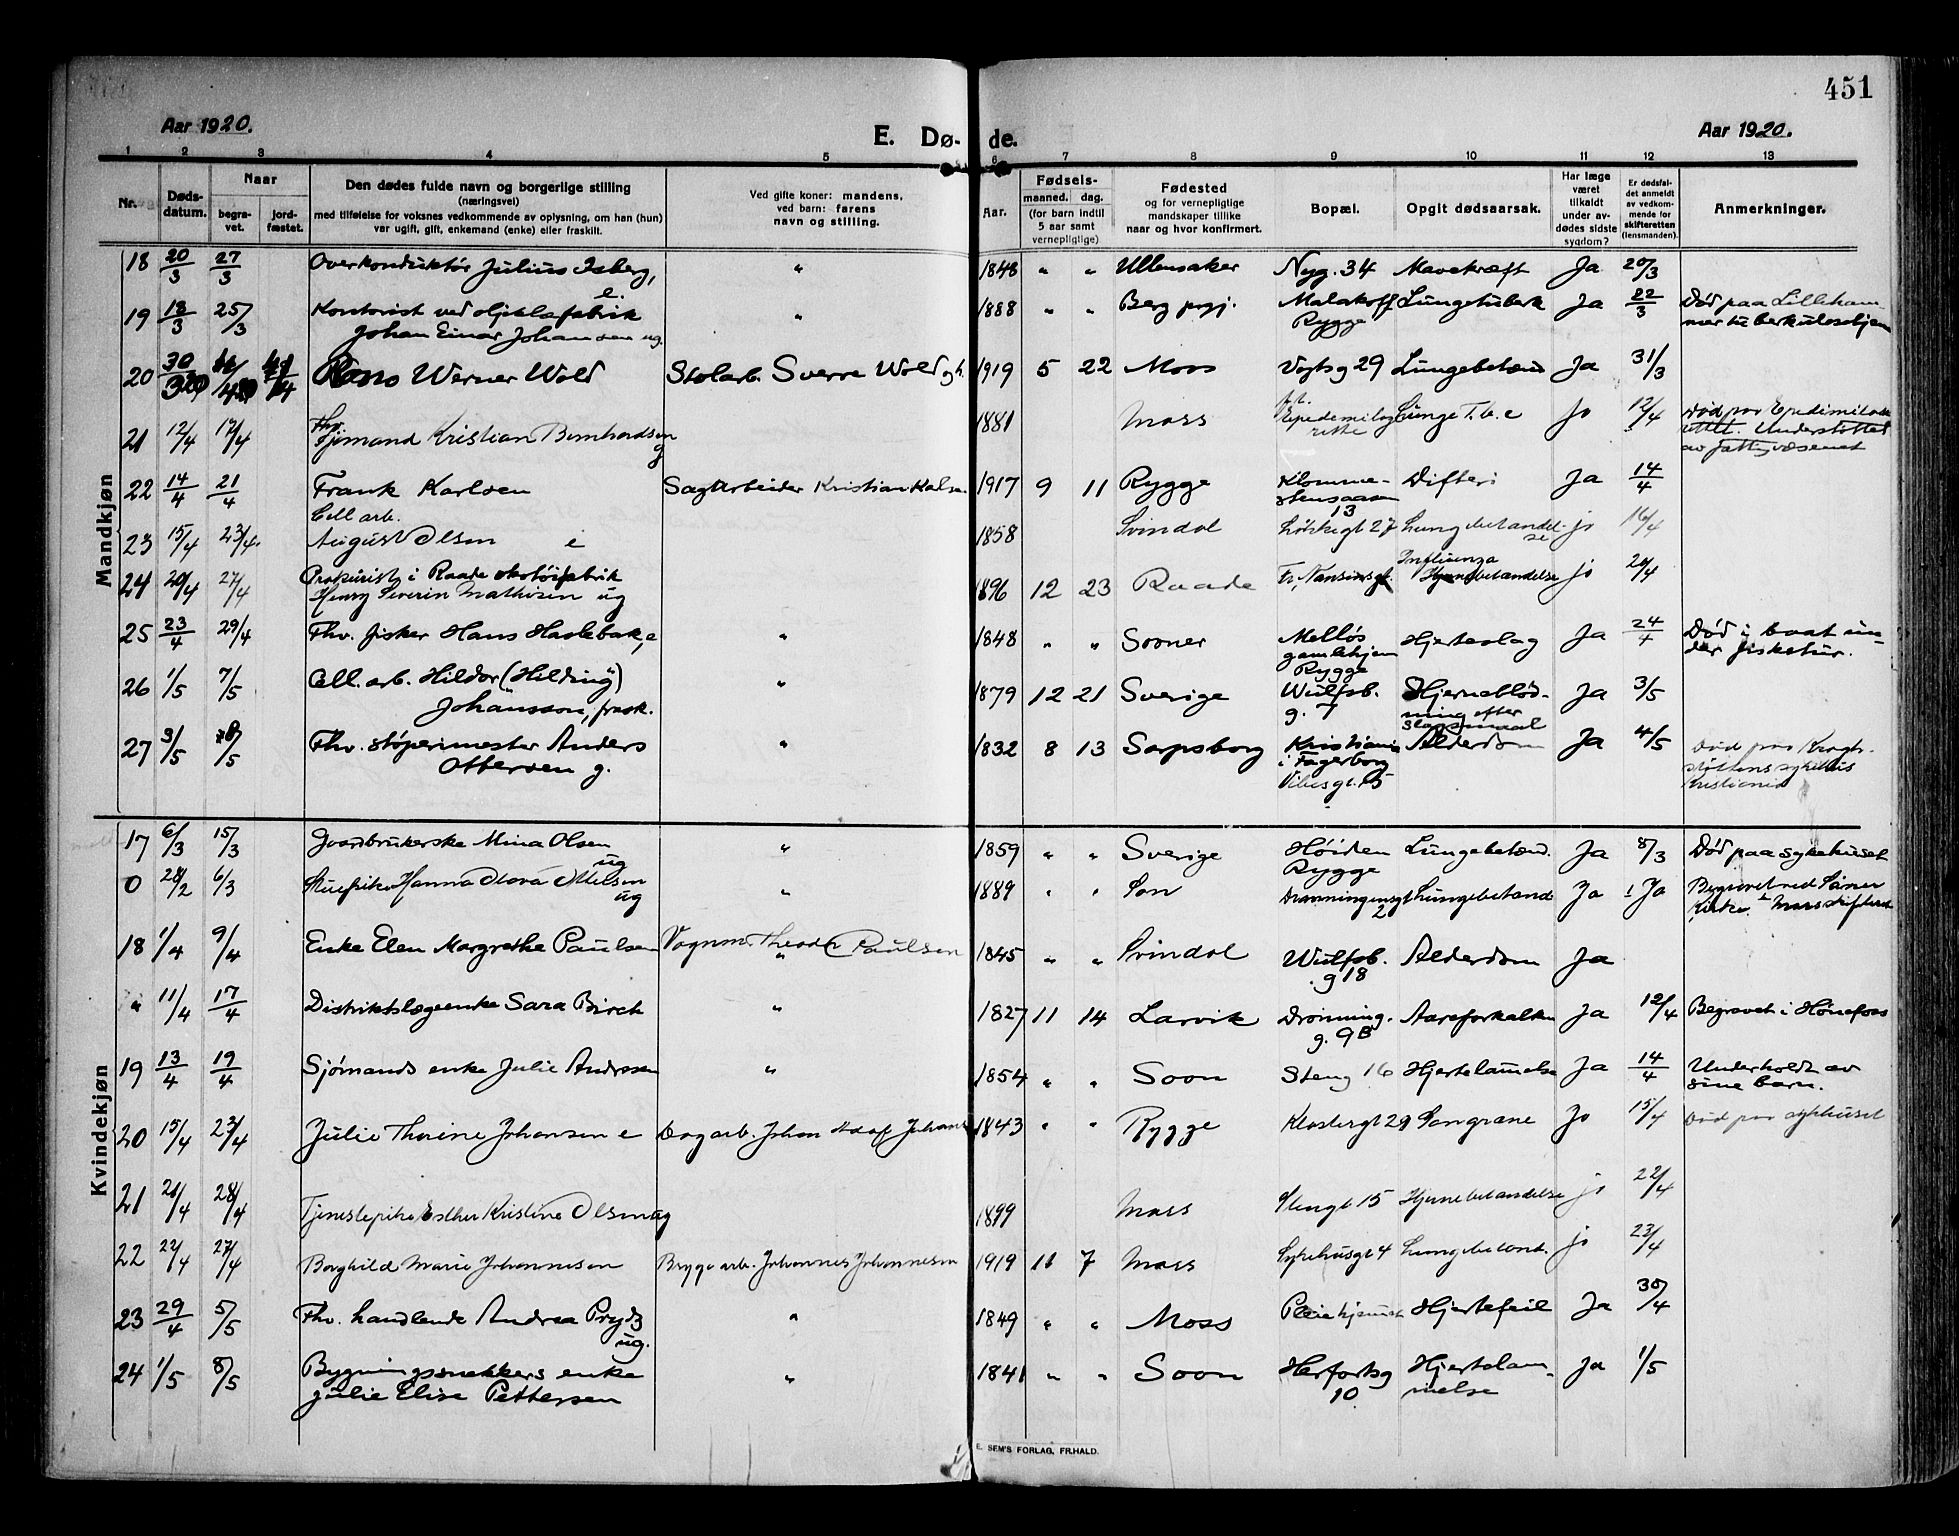 451
Aar 1920.
E. Dø- de.
Aar 1920.
1 2 3 4 5 6 7 8 9 10 11 12 13
Nr.
Døds-
datum.
Naar
begra-
vet.
jord-
fæstet.
Den dødes fulde navn og borgerlige stilling
(næringsvei)
med tilføielse for voksnes vedkommende av oplysning, om han (hun)
var ugift, gift, enkemand (enke) eller fraskilt.
Ved gifte koner: mandens,
ved barn: farens
navn og stilling.
Aar.
Fødsels-
maaned. dag.
(for barn indtil
5 aar samt
vernepligtige)
Fødested
og for vernepligtige
mandskaper tillike
naar og hvor konfirmert.
Bopæl.
Opgit dødsaarsak.
Har læge
været
tilkaldt
under av-
dødes sidste
sygdom?
Er dødsfal-
det anmeldt
av vedkom-
mende for
skifteretten
(lensmanden).
Anmerkninger.
Mandkjøn
18 20/3 27/3 Overkonduktør Julius Isberg, e. " 1848 " " Ullensaker Nyg. 34 Mavekræft Ja 20/3
19 18/3 25/3 Kontorist ved Hjulafabrik " 1888 " " Berg pgj. Malakoff Lungetuberk Ja 22/3 Død paa Lilleham-
Johan Einar Johansen ug Rygge mer tuberkulosehjem
20 30/3 Werner Wold Stolarb. Sverre Wold 1919 5 22 Moss Vogtsg 29 Lungebetænd Ja 31/3
21 12/4 17/4 Fhv. Sjømand Kristian Bernhardsen g 1881 Moss Lunge T.b.c Ja 12/4 Død paa Epedimilok-
Understøttet
av fattigvæsenet
22 14/4 21/4 Frank Karlsen Sagarbeider Kristian 1917 9 11 Rygge Klomme-
stensaasen
13 Difteri Ja 14/4
23 15/4 23/4 Cell arb.
August Olsen e 1858 Svindal 27 Lungebetændel-
se ja 16/4
24 20/4 27/4 Prokurist i Raade skotøifabrik
Henry Severin Mathisen ug 1896 12 23 Raade Fr. Nansensgt. Influenza
Hjernebetændelse ja 20/4
25 23/4 29/4 Fhv. fisker Hans Haslebak, e " 1848 " " Sooner Melløs
gamlehjem
Rygge Hjerteslag Ja 24/4 Død i baat un-
der fisketur.
26 1/5 7/5 Cell. arb. Hildor (Hilding)
Johansson, frask. " 1879 12 21 Sverige Wulfsb.
g. 7 Hjerneblød-
ning efter
slagsmaal Ja 3/5
27 3/5 8/5 Fhv. støperimester Anders
Ottersen g. " 1832 8 13 Sarpsborg Kristiania
i Fagerborg
Vibesgt. 15 Alderdom Ja 4/5 Død paa
Kristiania
Kvindekjøn
17 6/3 15/3 Jordbrukerske Mina Olsen
ug " 1859 " " Sverige Høiden
Rygge Lungebetænd. Ja 8/3 Død paa sykehuset
0 28/2 6/3 Hanna Olava Ottesen
ug " 1889 " " Son Dronningensgt
2 Lungebetænd Ja 1 Ja Begravet ved Såner
Kirke.
18 1/4 9/4 Enke Elen Margrethe Paulsen Vognm. Theodor Paulsen
" 1845 " " Svindal Wulfsb.
g 18 Alderdom Ja
" 11/4 17/4 Distriktslægeenke Sara Birch " 1827 11 14 Larvik Dronning.
g. 9B Aareforkalkn Ja 12/4 Begravet i Hønefoss
19 13/4 19/4 Sjømands enke Julie Andresen " 1854 " " Soon Steng 16 Hjertelammelse Ja 14/4 Underholdt av
sine barn.
20 15/4 23/4 Julie Thorine Johansen e Dagarb. Johan Adolf 1843 " " Rygge Klostergt 29 Sangræne Ja 15/4 Død paa sykehuset
21 21/4 28/4 Tjenestepike Esther Kristine Olsen ug 1899 Moss Stengt 15 Hjernebetændelse ja 22/4
22 22/4 27/4 Borghild Marie Johannesen Brygge arb. Johannes Johannesen 1919 11 7 Moss Sykehusgt 4 Lungebetænd. ja 23/4
23 29/4 5/5 Fhv. handlende Andrea Prydz
ug. " 1849 " " Moss Pleiehjemmet Hjertefeil Ja 30/4
24 1/5 8/5 Bygningssnekkers enke
Julie Elise Pettersen " 1841 " " Soon Herfortsg
10 Hjertelam-
melse Ja 1/5
E. SEM'S FORLAG, FR.HALD.